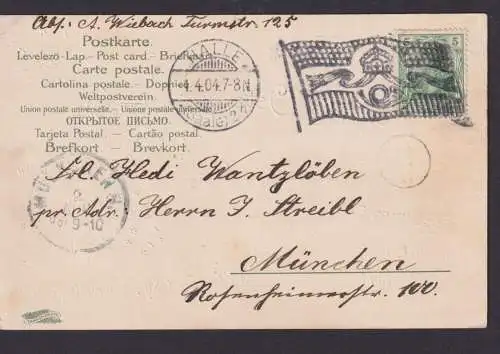 Abs: A. Wiebach Turmstr. 125
Postkarte.
Levelező-Lap - Post card - Briefkaart
Carte postale.
Cartolina postale - Dopisnice
Weltpostverein.
Union postale universelle. - Unione postale universale.
ОТКРЫТОЕ ПИСЬМО.
Tarjeta Postal - Cartão postal.
Brefkort - Brevkort.
HALLE
4.4.04.7-8N
(Saale) 2
5
Frl. Hedi Wantzlöben
pr. Adr: Herrn J. Streibl
München
Rosenheimerstr. 100.
9-10